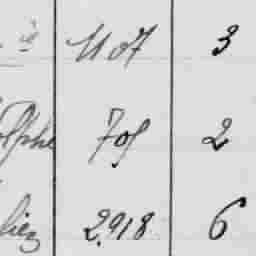 1107 3
olphe 705 2
liez 2.918 6